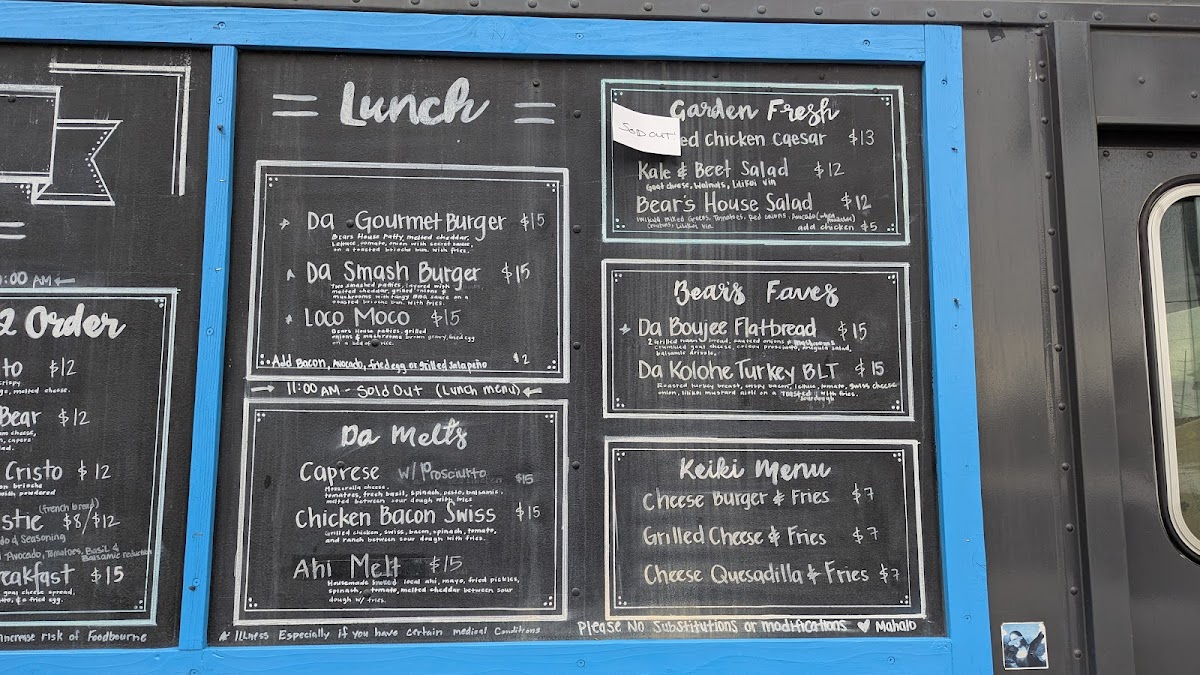 :00 AM
2 Order
to $12
crispy
o, melted cheese.
Bear $12
m cheese,
, capers
Cristo $12
on brioche
with powdered
(french bread)
stie $8/$12
do & Seasoning
Avocado, Tomatoes, Basil &
Balsamic reduction
reakfast $15
goat cheese spread,
to, & a fried egg.
increase risk of Foodbourne
= Lunch =
Da Gourmet Burger $15
Bears House Patty, melted cheddar,
Lettuce, tomato, onion with secret sauce,
on a toasted brioche bun. with fries.
Da Smash Burger $15
Two smashed patties, layered with
melted cheddar, grilled onions &
mushrooms with tangy BBQ sauce on a
toasted brioche bun. with fries.
Loco Moco $15
Bears House patties, grilled
onions & mushrooms brown gravy, fried egg
on a bed of rice.
Add Bacon, Avocado, fried egg or Grilled Jalapeño $2
11:00 AM - Sold Out (Lunch menu)
Da Melts
Caprese w/ Prosciutto $15
Mozzarella cheese,
tomatoes, fresh basil, spinach, pesto, balsamic.
melted between sour dough with fries
Chicken Bacon Swiss $15
Grilled chicken, swiss, bacon, spinach, tomato,
and ranch between sour dough with fries.
Ahi Melt $15
Housemade smoked local ahi, mayo, fried pickles,
spinach, tomato, melted cheddar between sour
dough w/ fries.
Illness Especially if you have certain medical conditions
Garden Fresh
SOLD OUT!
ed Chicken Caesar $13
Kale & Beet Salad $12
Goat cheese, Walnuts, Lilikoi Vin
Bear's House Salad $12
mixed Greens, Tomatoes, Red onions, Avocado (when available)
Lilikoi Vin
add chicken $5
Bears Faves
Da Boujee Flatbread $15
2 Grilled naan bread, sauteed onions & mushrooms
crumbled goat cheese, crispy prosciutto, arugula salad,
balsamic drizzle.
Da Kolohe Turkey BLT $15
Roasted turkey breast, crispy bacon, lettuce, tomato, swiss cheese
onion, lilikoi mustard aioli on a TOASTED with fries.
Sourdough
Keiki Menu
Cheese Burger & Fries $7
Grilled Cheese & Fries $7
Cheese Quesadilla & Fries $7
Please No Substitutions or modifications ♥ Mahalo